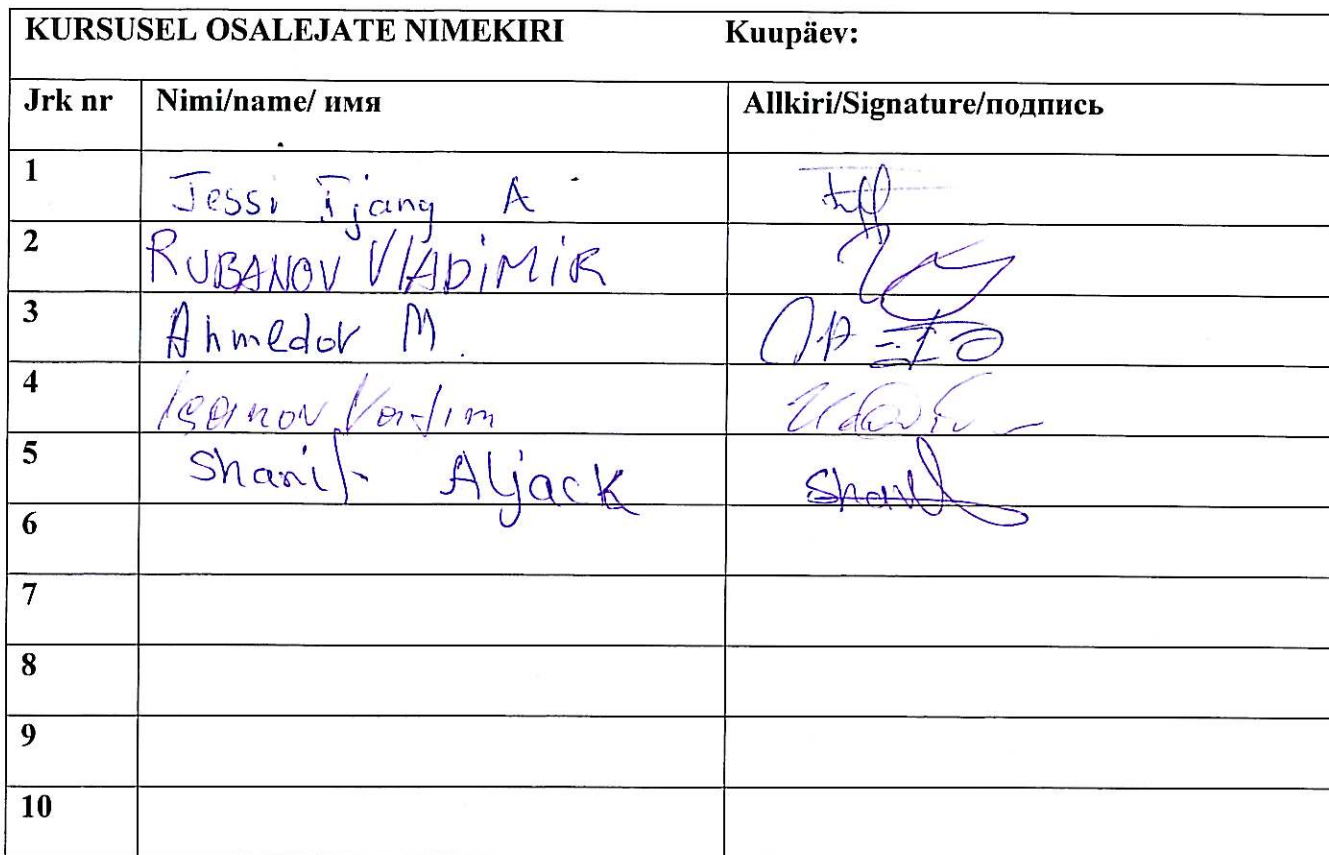 KURSUSEL OSALEJATE NIMEKIRI Kuupäev:
Jrk nr Nimi/name/ имя Allkiri/Signature/подпись
1 Jessi Tjang A
2 RUBANOV VlADiMiR
3 Ahmedov M.
4 Vadim
5 Sharif Aljack
6
7
8
9
10